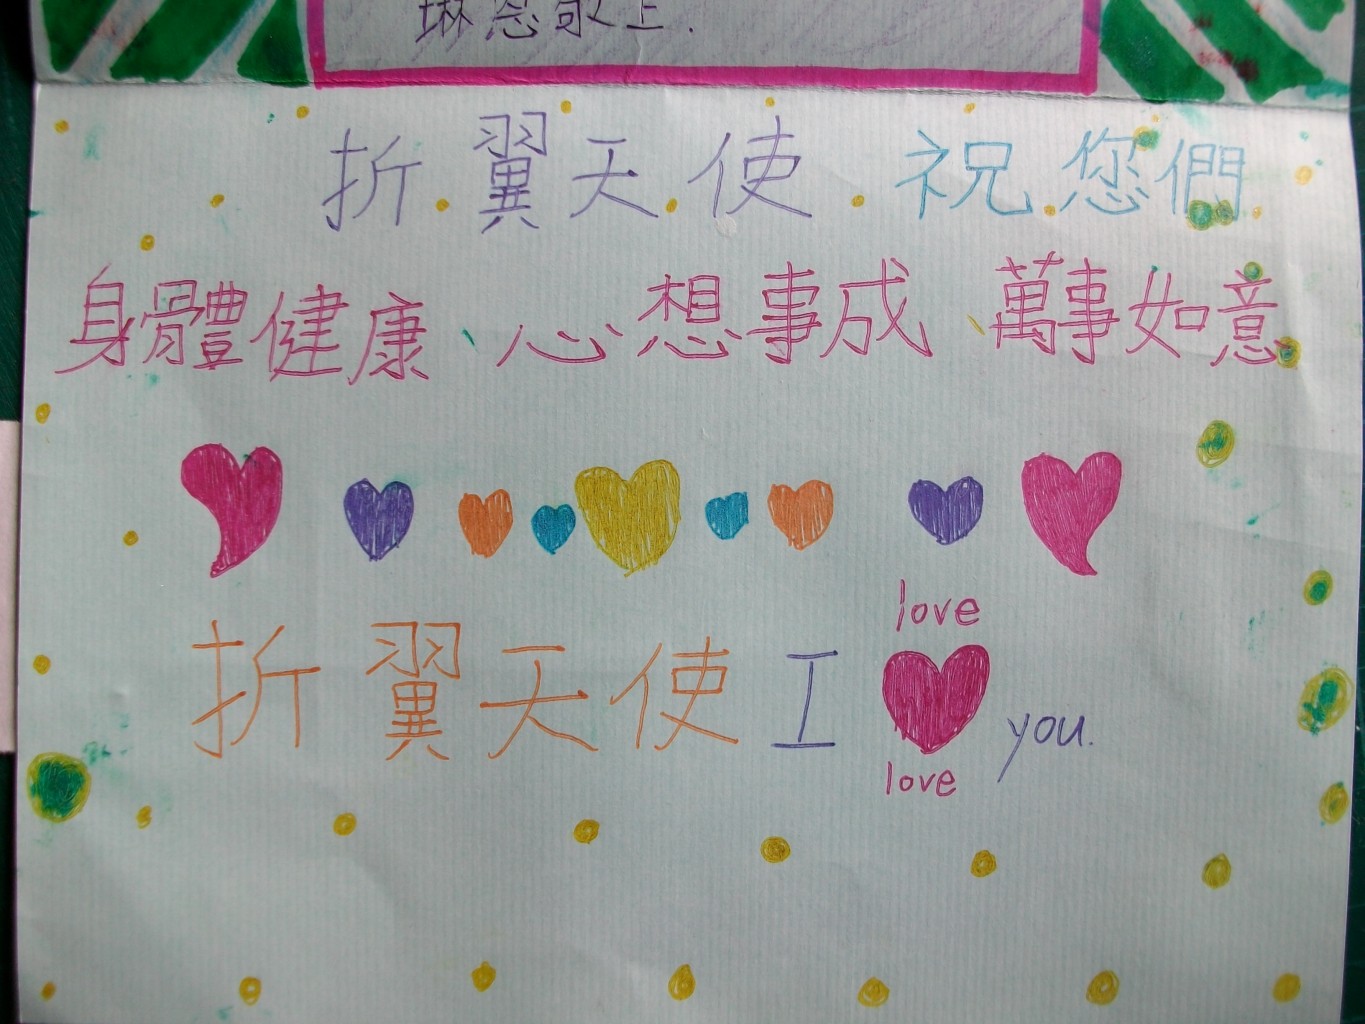 琳恩敬上.
折翼天使 祝您們
身體健康、心想事成、萬事如意
love
折翼天使 I you.
love